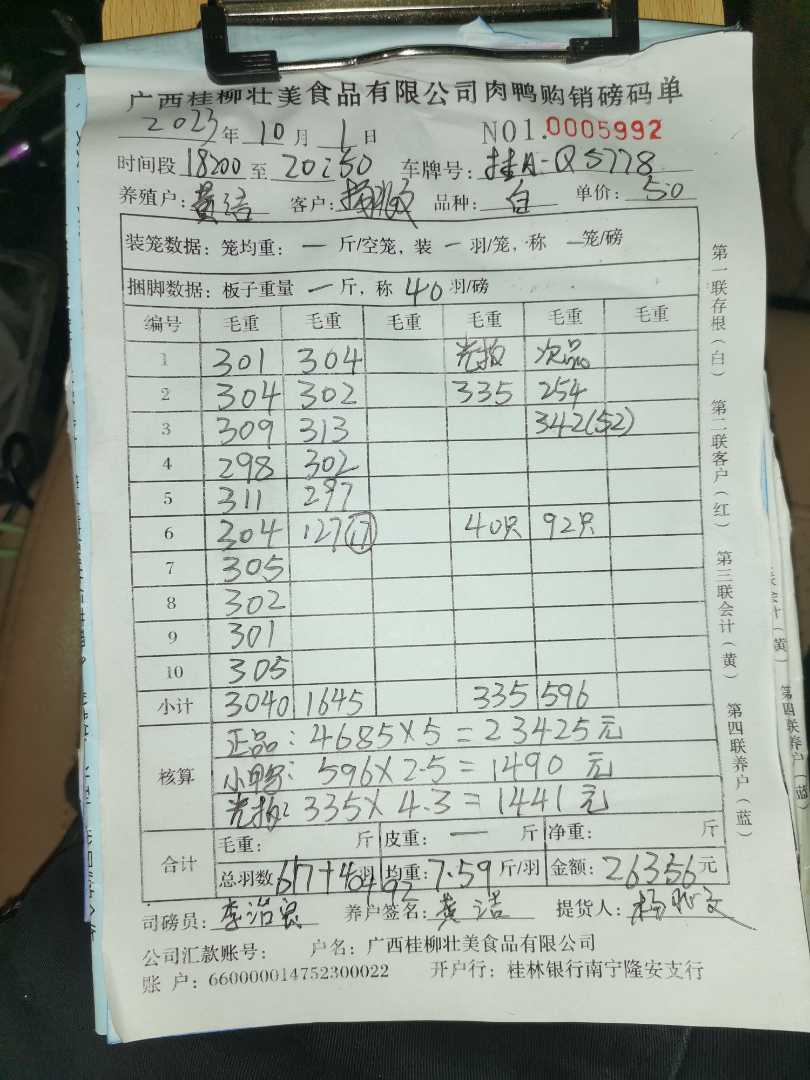 广西桂柳壮美食品有限公司肉鸭购销磅码单
2023年10月1日 NO1.0005992
时间段 18:00 至 20:50 车牌号: 桂A-Q5778
养殖户: 黄洁 客户: 品种: 白 单价: 5.0
装笼数据: 笼均重: 一 斤/空笼, 装 一 羽/笼, 称 一笼/磅
捆脚数据: 板子重量 一 斤, 称 40 羽/磅
编号 毛重 毛重 毛重 毛重 毛重 毛重
1 301 304 光拔 次品
2 304 302 335 254
3 309 313 342(52)
4 298 302
5 311 297
6 304 127(17) 40只 92只
7 305
8 302
9 301
10 305
小计 3040 1645 335 596
核算 正品: 4685×5=23425元
小鸭: 596×2.5=1490 元
光拔: 335×4.3=1441元
合计 毛重: 斤 皮重: 一 斤 净重: 斤
总羽数 617+40+92羽 均重: 7.59 斤/羽 金额: 26356元
司磅员: 李治良 养户签名: 黄洁 提货人:
公司汇款账号: 户名: 广西桂柳壮美食品有限公司
账 户: 660000014752300022 开户行: 桂林银行南宁隆安支行
第一联存根(白) 第二联客户(红) 第三联会计(黄) 第四联养户(蓝)
联会计(黄) 第四联养户(蓝)